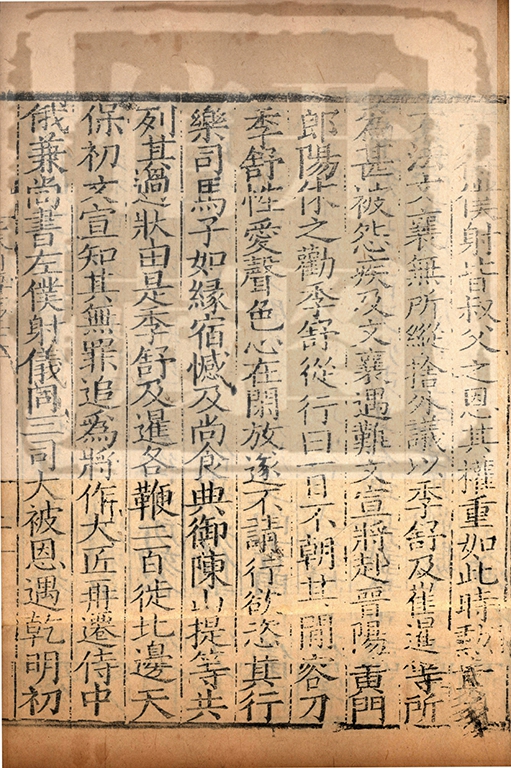 僕射皆叔父之恩其權重如此時勳貴多
不法文襄無所縱捨外議以季舒及崔暹等所
為甚被怨疾及文襄遇難文宣將赴晉陽黃門
郎陽休之勸季舒從行曰一日不朝其間容刀
季舒性愛聲色心在閑放遂不請行欲恣其行
樂司馬子如緣宿憾及尚食典御陳山提等共
列其過狀由是季舒及暹各鞭二百徙北邊天
保初文宣知其無罪追為將作大匠再遷侍中
俄兼尚書左僕射儀同三司大被恩遇乾明初